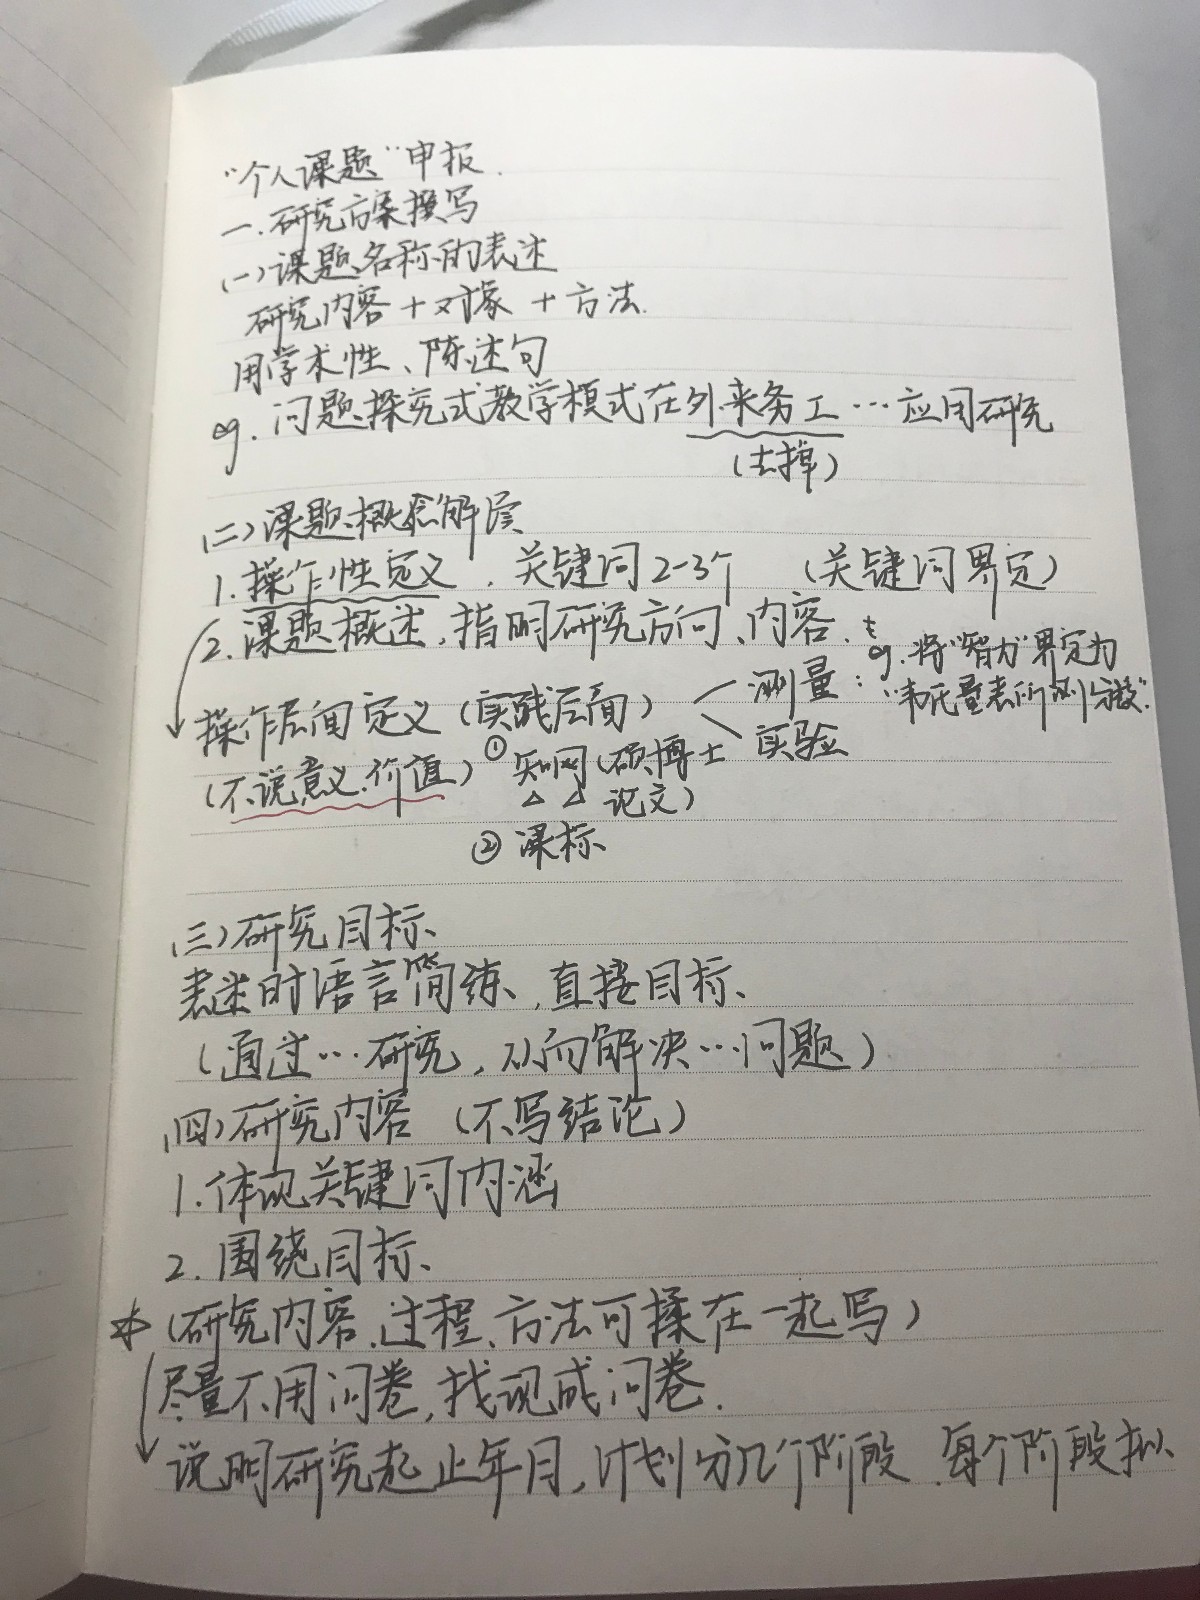 “个人课题”申报.
一.研究方案撰写
(一)课题名称的表述
研究内容+对象+方法.
用学术性、陈述句
eg.问题探究式教学模式在外来务工…应用研究
(去掉)
(二)课题概念解
1.操作性定义.关键词2-3个 (关键词界定)
2.课题概述,指明研究方向、内容.
eg.将“智力”界定为
“韦氏量表所测分数”.
操作层面定义(实践层面) 测量:
实验
(不说意义.价值) ①知网(硕博士
论文)
②课标
(三)研究目标
表述时语言简练,直接目标
(通过…研究,从而解决…问题)
(四)研究内容 (不写结论)
1.体现关键词内涵
2.围绕目标
(研究内容、过程、方法可揉在一起写)
尽量不用问卷,找现成问卷.
说明研究起止年月,计划分几个阶段.每个阶段拟